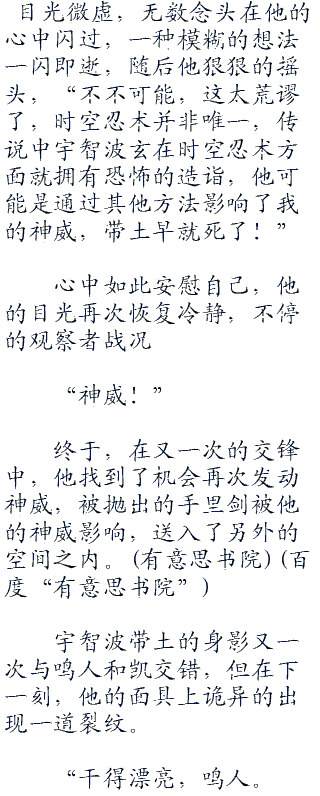 目光微虚，无数念头在他的
心中闪过，一种模糊的想法
一闪即逝，随后他狠狠的摇
头，“不不可能，这太荒谬
了，时空忍术并非唯一，传
说中宇智波玄在时空忍术方
面就拥有恐怖的造诣，他可
能是通过其他方法影响了我
的神威，带土早就死了！”
心中如此安慰自己，他
的目光再次恢复冷静，不停
的观察者战况
“神威！”
终于，在又一次的交锋
中，他找到了机会再次发动
神威，被抛出的手里剑被他
的神威影响，送入了另外的
空间之内。(有意思书院)(百
度“有意思书院”)
宇智波带土的身影又一
次与鸣人和凯交错，但在下
一刻，他的面具上诡异的出
现一道裂纹。
“干得漂亮，鸣人。